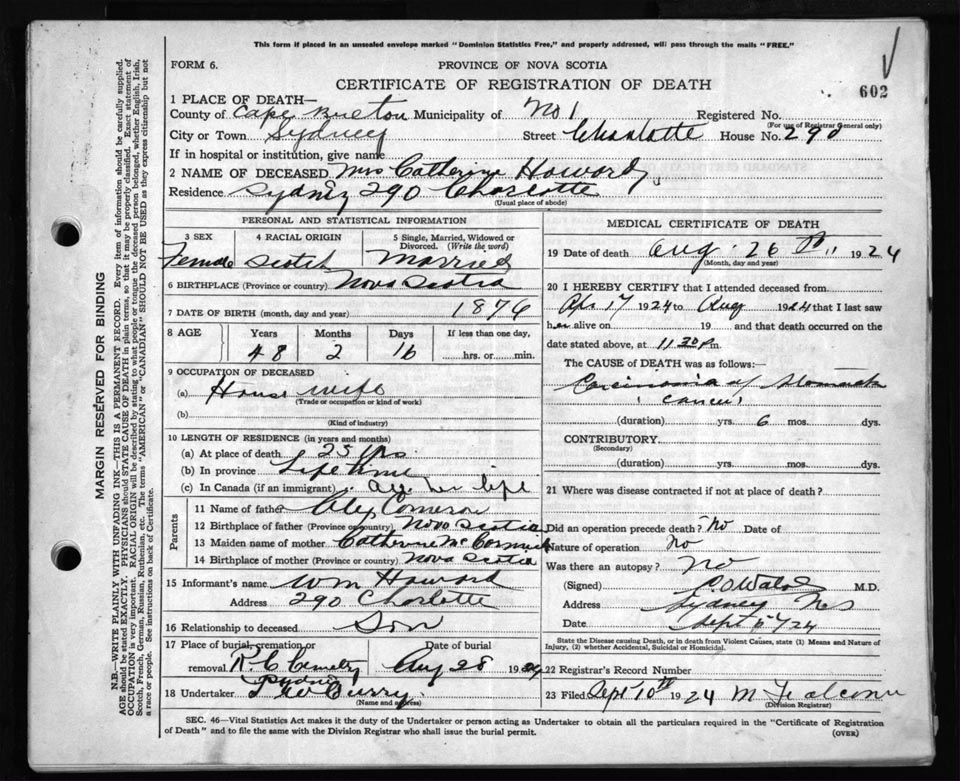 This form if placed in an unsealed envelope marked "Dominion Statistics Free," and properly addressed, will pass through the mails "FREE."
FORM 6.
PROVINCE OF NOVA SCOTIA
CERTIFICATE OF REGISTRATION OF DEATH
602
1 PLACE OF DEATH—
County of Cape Breton Municipality of No 1 Registered No.
(For use of Registrar General only)
City or Town Sydney Street Charlotte House No. 290
If in hospital or institution, give name
2 NAME OF DECEASED Mrs Catherine Howard
Residence Sydney 290 Charlotte
(Usual place of abode)
PERSONAL AND STATISTICAL INFORMATION
3 SEX 4 RACIAL ORIGIN 5 Single, Married, Widowed or Divorced. (Write the word)
Female Scotch Married
6 BIRTHPLACE (Province or country) Nova Scotia
7 DATE OF BIRTH (month, day and year) 1876
8 AGE Years Months Days If less than one day,
48 2 16 hrs. or min.
9 OCCUPATION OF DECEASED
(a) House wife
(Trade or occupation or kind of work)
(b)
(Kind of industry)
10 LENGTH OF RESIDENCE (in years and months)
(a) At place of death 25 yrs
(b) In province Life time
(c) In Canada (if an immigrant) All her life
Parents
11 Name of father Alex Cameron
12 Birthplace of father (Province or country) Nova Scotia
13 Maiden name of mother Catherine McCormick
14 Birthplace of mother (Province or country) Nova Scotia
15 Informant's name Wm Howard
Address 290 Charlotte
16 Relationship to deceased Son
17 Place of burial, cremation or Date of burial
removal R. C. Cemetery Aug 28 1924
Sydney
18 Undertaker Curry
(Name and address)
MEDICAL CERTIFICATE OF DEATH
19 Date of death Aug 26th 1924
(Month, day and year)
20 I HEREBY CERTIFY that I attended deceased from
Apr 17 1924 to Aug 1924 that I last saw
her alive on 19 and that death occurred on
date stated above, at 11 30 P m.
The CAUSE OF DEATH was as follows:
Carcinoma of Stomach
(Cancer)
(duration) yrs. 6 mos. dys.
CONTRIBUTORY
(Secondary)
(duration) yrs. mos. dys.
21 Where was disease contracted if not at place of death?
Did an operation precede death? No Date of
Nature of operation No
Was there an autopsy? No
(Signed) M.D.
Address Sydney NS
Date Sept 24
State the Disease causing Death, or in death from Violent Causes, state (1) Means and Nature of Injury, (2) whether Accidental, Suicidal or Homicidal.
22 Registrar's Record Number
23 Filed Sept 10th 1924 M Falconer
(Division Registrar)
SEC. 46—Vital Statistics Act makes it the duty of the Undertaker or person acting as Undertaker to obtain all the particulars required in the "Certificate of Registration
of Death" and to file the same with the Division Registrar who shall issue the burial permit.
(OVER)
MARGIN RESERVED FOR BINDING
N.B.—WRITE PLAINLY WITH UNFADING INK—THIS IS A PERMANENT RECORD. Every item of information should be carefully supplied.
AGE should be stated EXACTLY. PHYSICIANS should STATE CAUSE OF DEATH in plain terms, so that it may be properly classified. Exact statement of
OCCUPATION is very important. RACIAL ORIGIN will be described by stating to what people or tongue the deceased person belonged, whether English, Irish,
Scotch, French, German, Russian, Ruthenian, etc. The terms "AMERICAN" or "CANADIAN" SHOULD NOT BE USED as they express citizenship but not
a race or people. See instructions on back of Certificate.